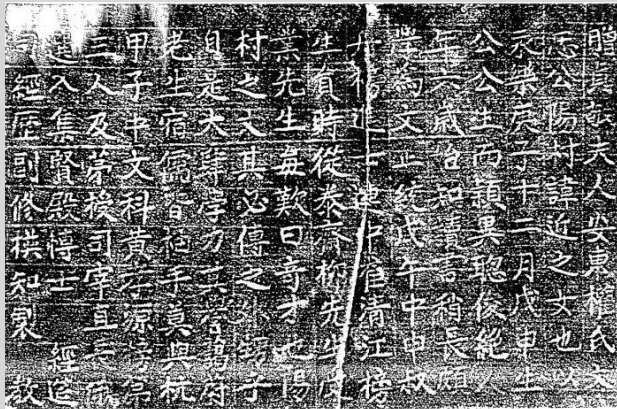 贈貞敬夫人安東權氏文
忠公陽村諱近之女也以
永樂庚子十二月戊申生
公公生而穎異聰俊絶人
年六歲始知讀書稍長頗
爲文正統戊午中申叔
舟榜進士連中崔清江榜
生員時從泰齋柳先生受
業先生每歎曰奇才也陽
村之文其必傳之外甥子
自是大肆字力
老士宿儒皆袖手莫與抗
甲子中文科黃石原榜第
三人及第授司宰直長俄
選入集賢殿博士 經筵
司經歷副修撰知製敎